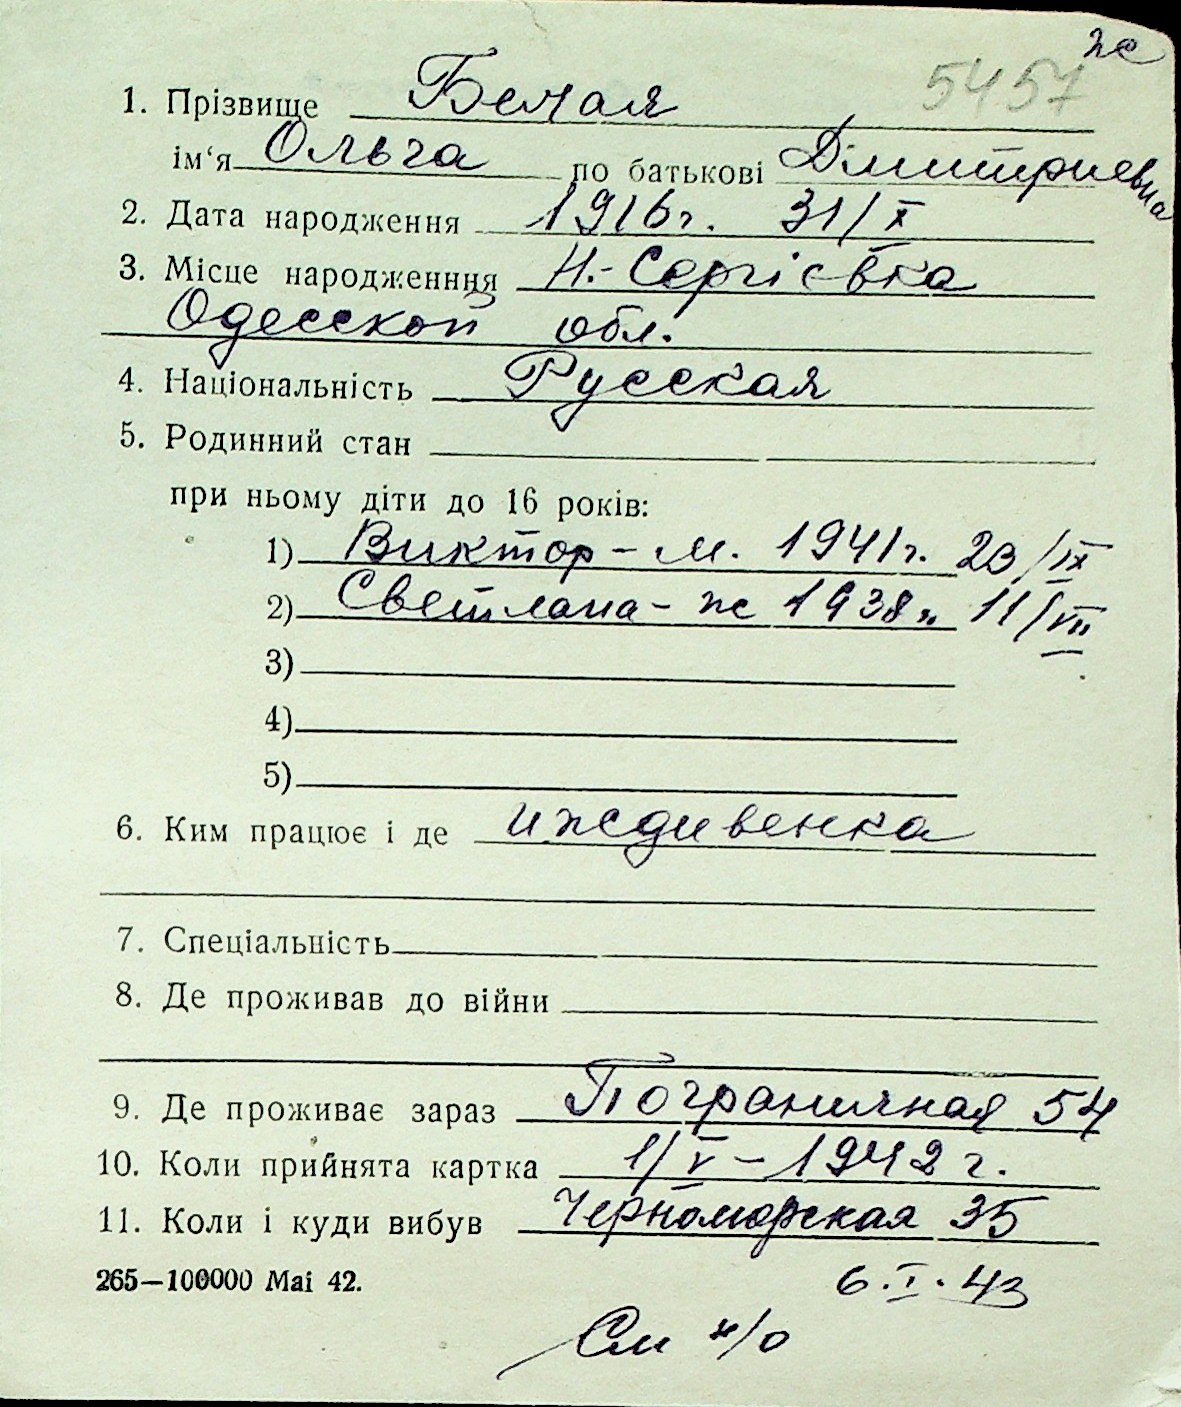 ж
5457
1. Прізвище Белая
ім‘я Ольга по батькові Дмитриевна
2. Дата народження 1916г. 31/X
3. Місце народженння Н.-Сергієвка
Одесской обл.
4. Національність Русская
5. Родинний стан
при ньому діти до 16 років:
1) Виктор - м. 1941г. 23/IX
2) Светлана - ж 1938г. 11/VII
3)
4)
5)
6. Ким працює і де иждивенка
7. Спеціальність
8. Де проживав до війни
9. Де проживає зараз Пограничная 54
10. Коли прийнята картка 1/V - 1942 г.
11. Коли і куди вибув Черноморская 35
265—100000 Mai 42. 6.I.43
См н/о